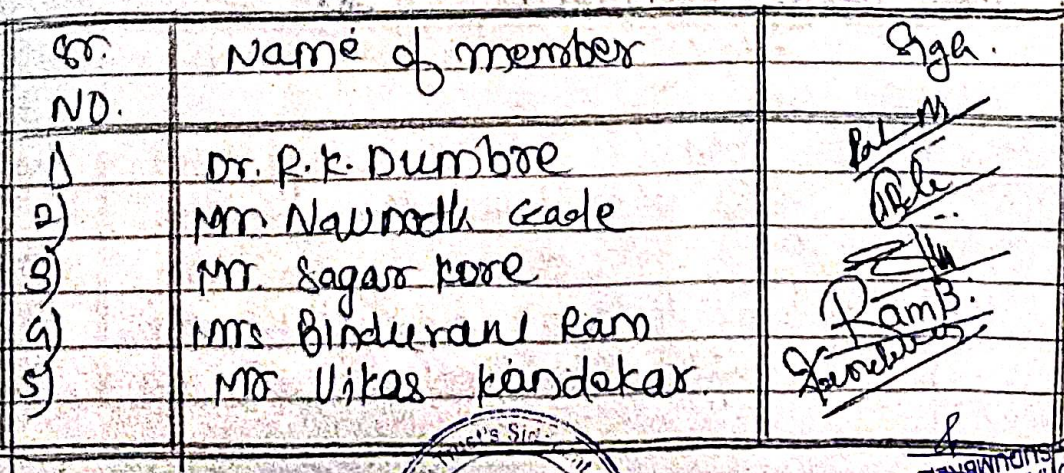 Sr. Name of member Sign.
NO.
1) Dr. R.K. Dumbre
2) Mr. Navnodh Gade
3) Mr. Sagar Kore
4) Mrs Bindurani Ram RamB.
5) Mr Vikas Kandekar.